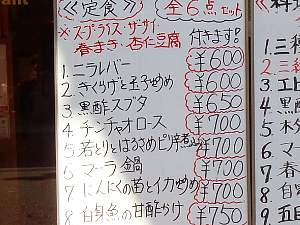 ≪定食≫ 全6点セット
※スープ・ライス・ザーサイ
春まき・杏仁豆腐 付きます!!
1. ニラレバー ¥600
2. きくらげと玉子炒め ¥600
3. 黒酢スブタ ¥650
4. チンジャオロース ¥700
5. 若とりとはるさめピリ辛煮込 ¥700
6. マーラ鍋 ¥700
7. にんにくの苗とイカ炒め ¥700
8. 白身魚の甘酢かけ ¥750
1. 三
2. 三
3. エ
4. 黒
5. ホ
6. マ
7. 春
8.
9. 五